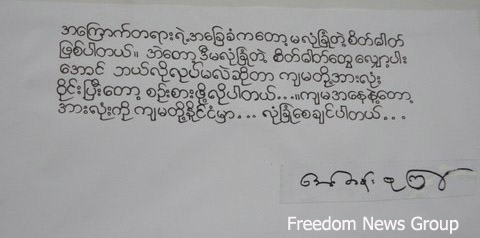 အကြောက်တရားရဲ့အခြေခံကတော့ မလုံခြုံတဲ့ စိတ်ဓါတ်
ဖြစ်ပါတယ်။ အဲတော့ ဒီမလုံခြုံတဲ့ စိတ်ဓါတ်တွေ လျှော့ပါး
အောင် ဘယ်လိုလုပ်မလဲဆိုတာ ကျမတို့အားလုံး
ဝိုင်းပြီးတော့ စဉ်းစားဖို့လိုပါတယ်...။ကျမအနေနဲ့တော့
အားလုံးကို ကျမတို့နိုင်ငံမှာ... လုံခြုံစေချင်ပါတယ်...
Freedom News Group